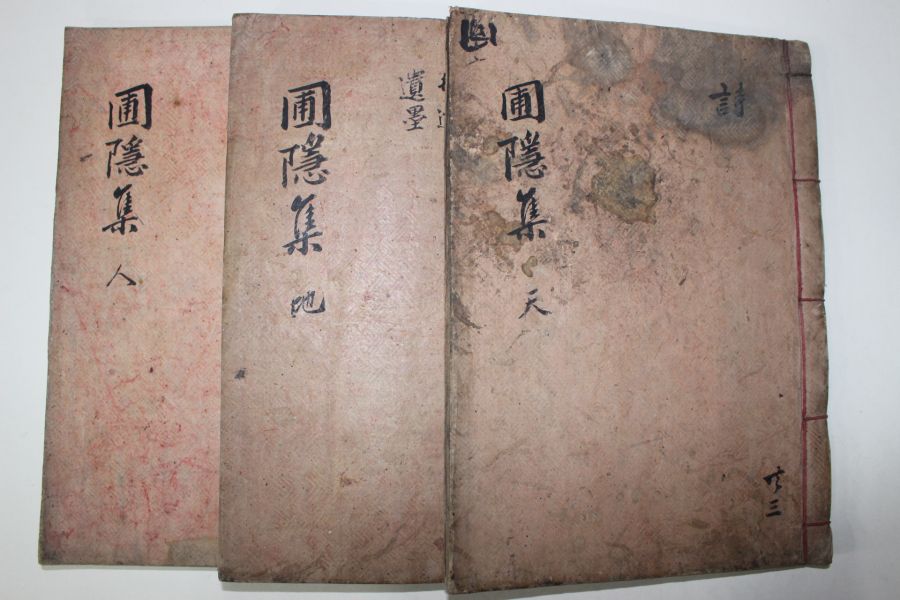 圃隱集 天
詩
共三
圃隱集 地
遺墨
圃隱集 人